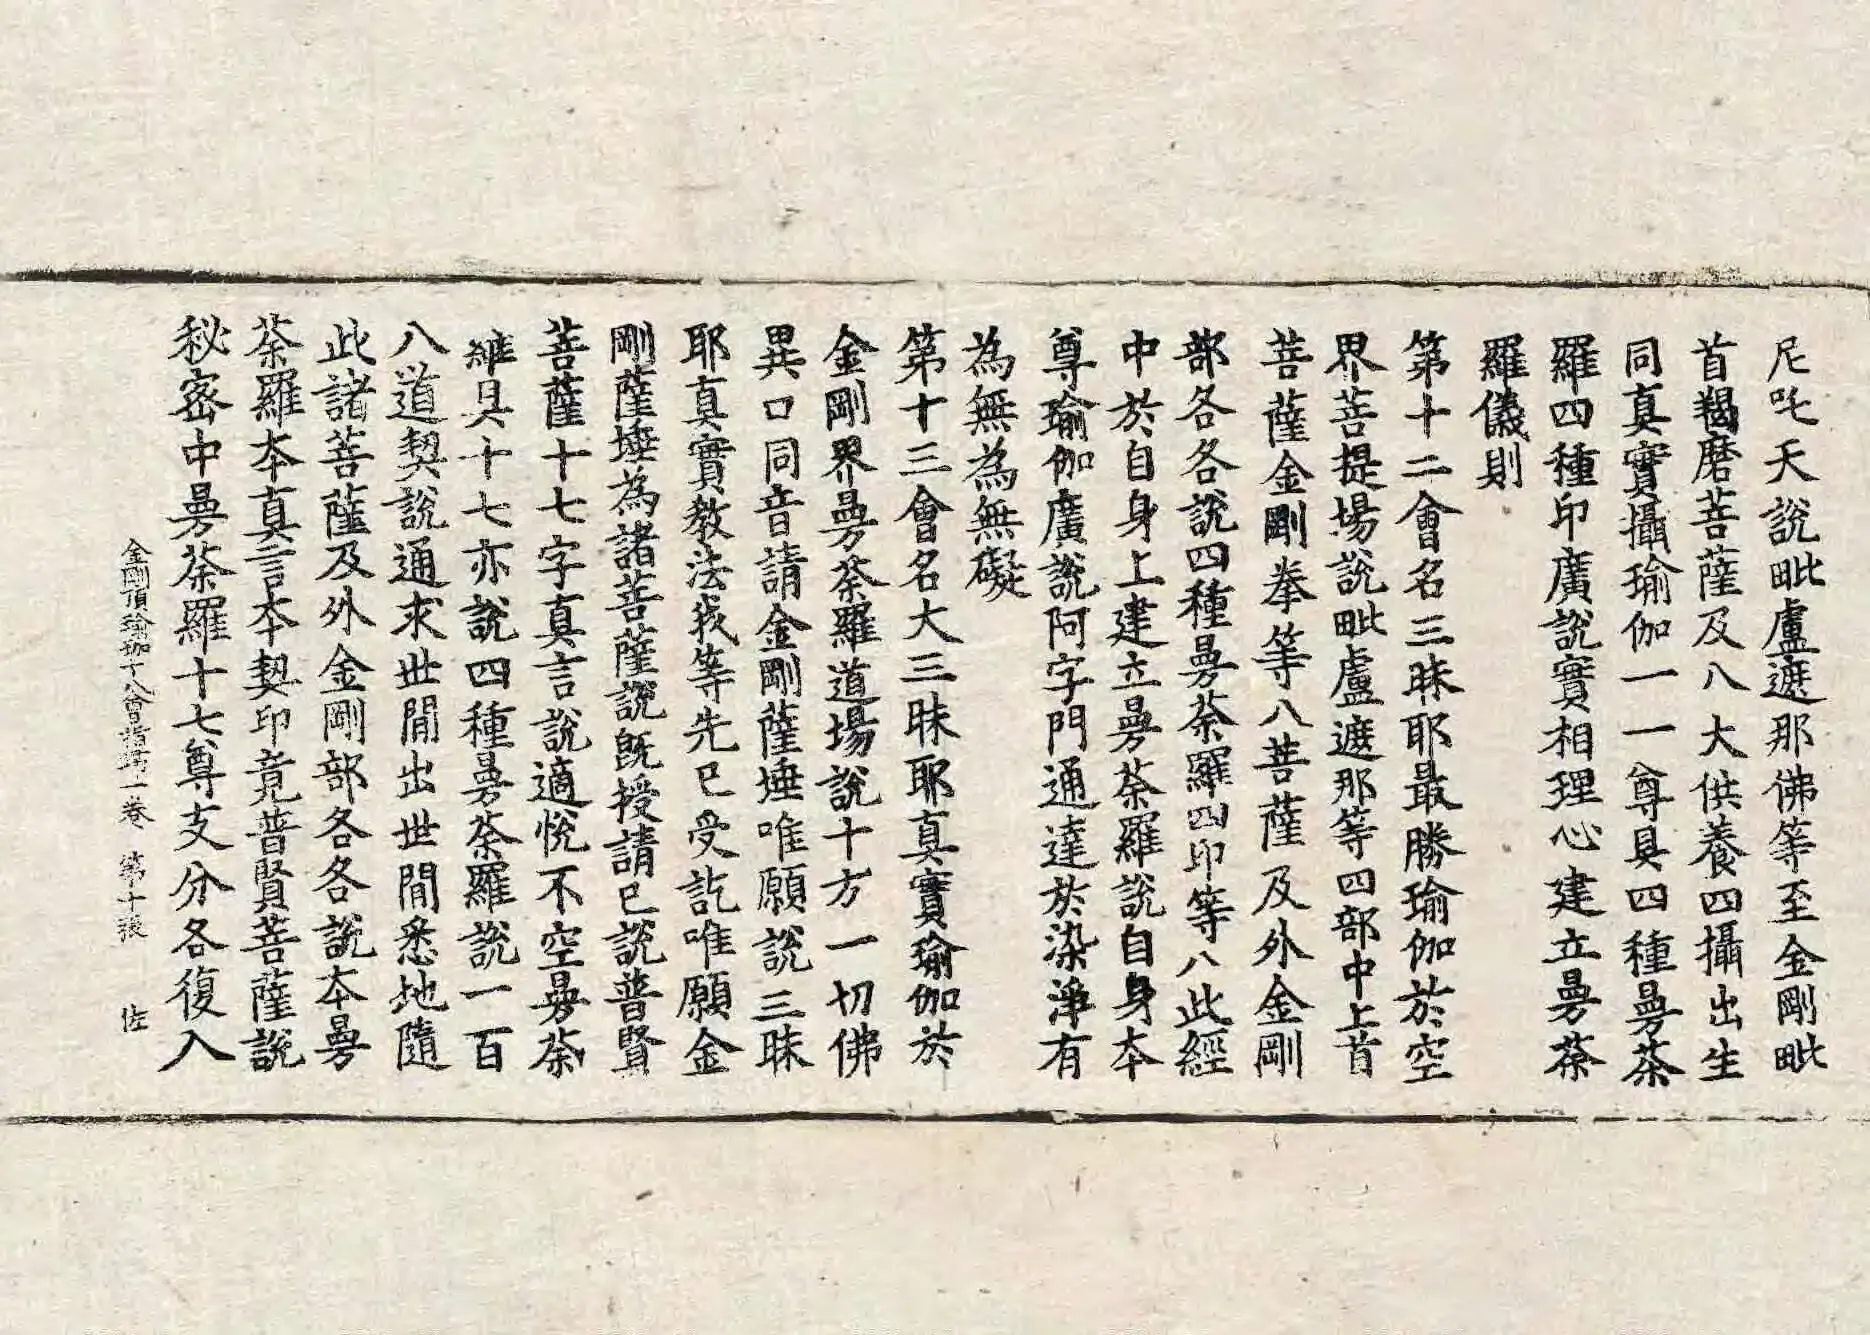 尼吒天說毗盧遮那佛等至金剛毗
首羯磨菩薩及八大供養四攝出生
同真實攝瑜伽一一尊具四種曼茶
羅四種印廣說實相理心建立曼茶
羅儀則
第十二會名三昧耶最勝瑜伽於空
界菩提場說毗盧遮那等四部中上首
菩薩金剛拳等八菩薩及外金剛
部各各說四種曼茶羅四印等八此經
中於自身上建立曼茶羅說自身本
尊瑜伽廣說阿字門通達於染淨有
為無為無礙
第十三會名大三昧耶真實瑜伽於
金剛界曼茶羅道場說十方一切佛
異口同音請金剛薩埵唯願說三昧
耶真實教法我等先已受訖唯願金
剛薩埵為諸菩薩說旣授請已說普賢
菩薩十七字真言說適悅不空曼茶
羅具十七亦說四種曼茶羅說一百
八道契說通求世間出世間悉地隨
此諸菩薩及外金剛部各各說本曼
茶羅本真言本契印竟普賢菩薩說
秘密中曼茶羅十七尊支分各復入
金剛頂瑜伽十八會指歸一卷 第十張 佐